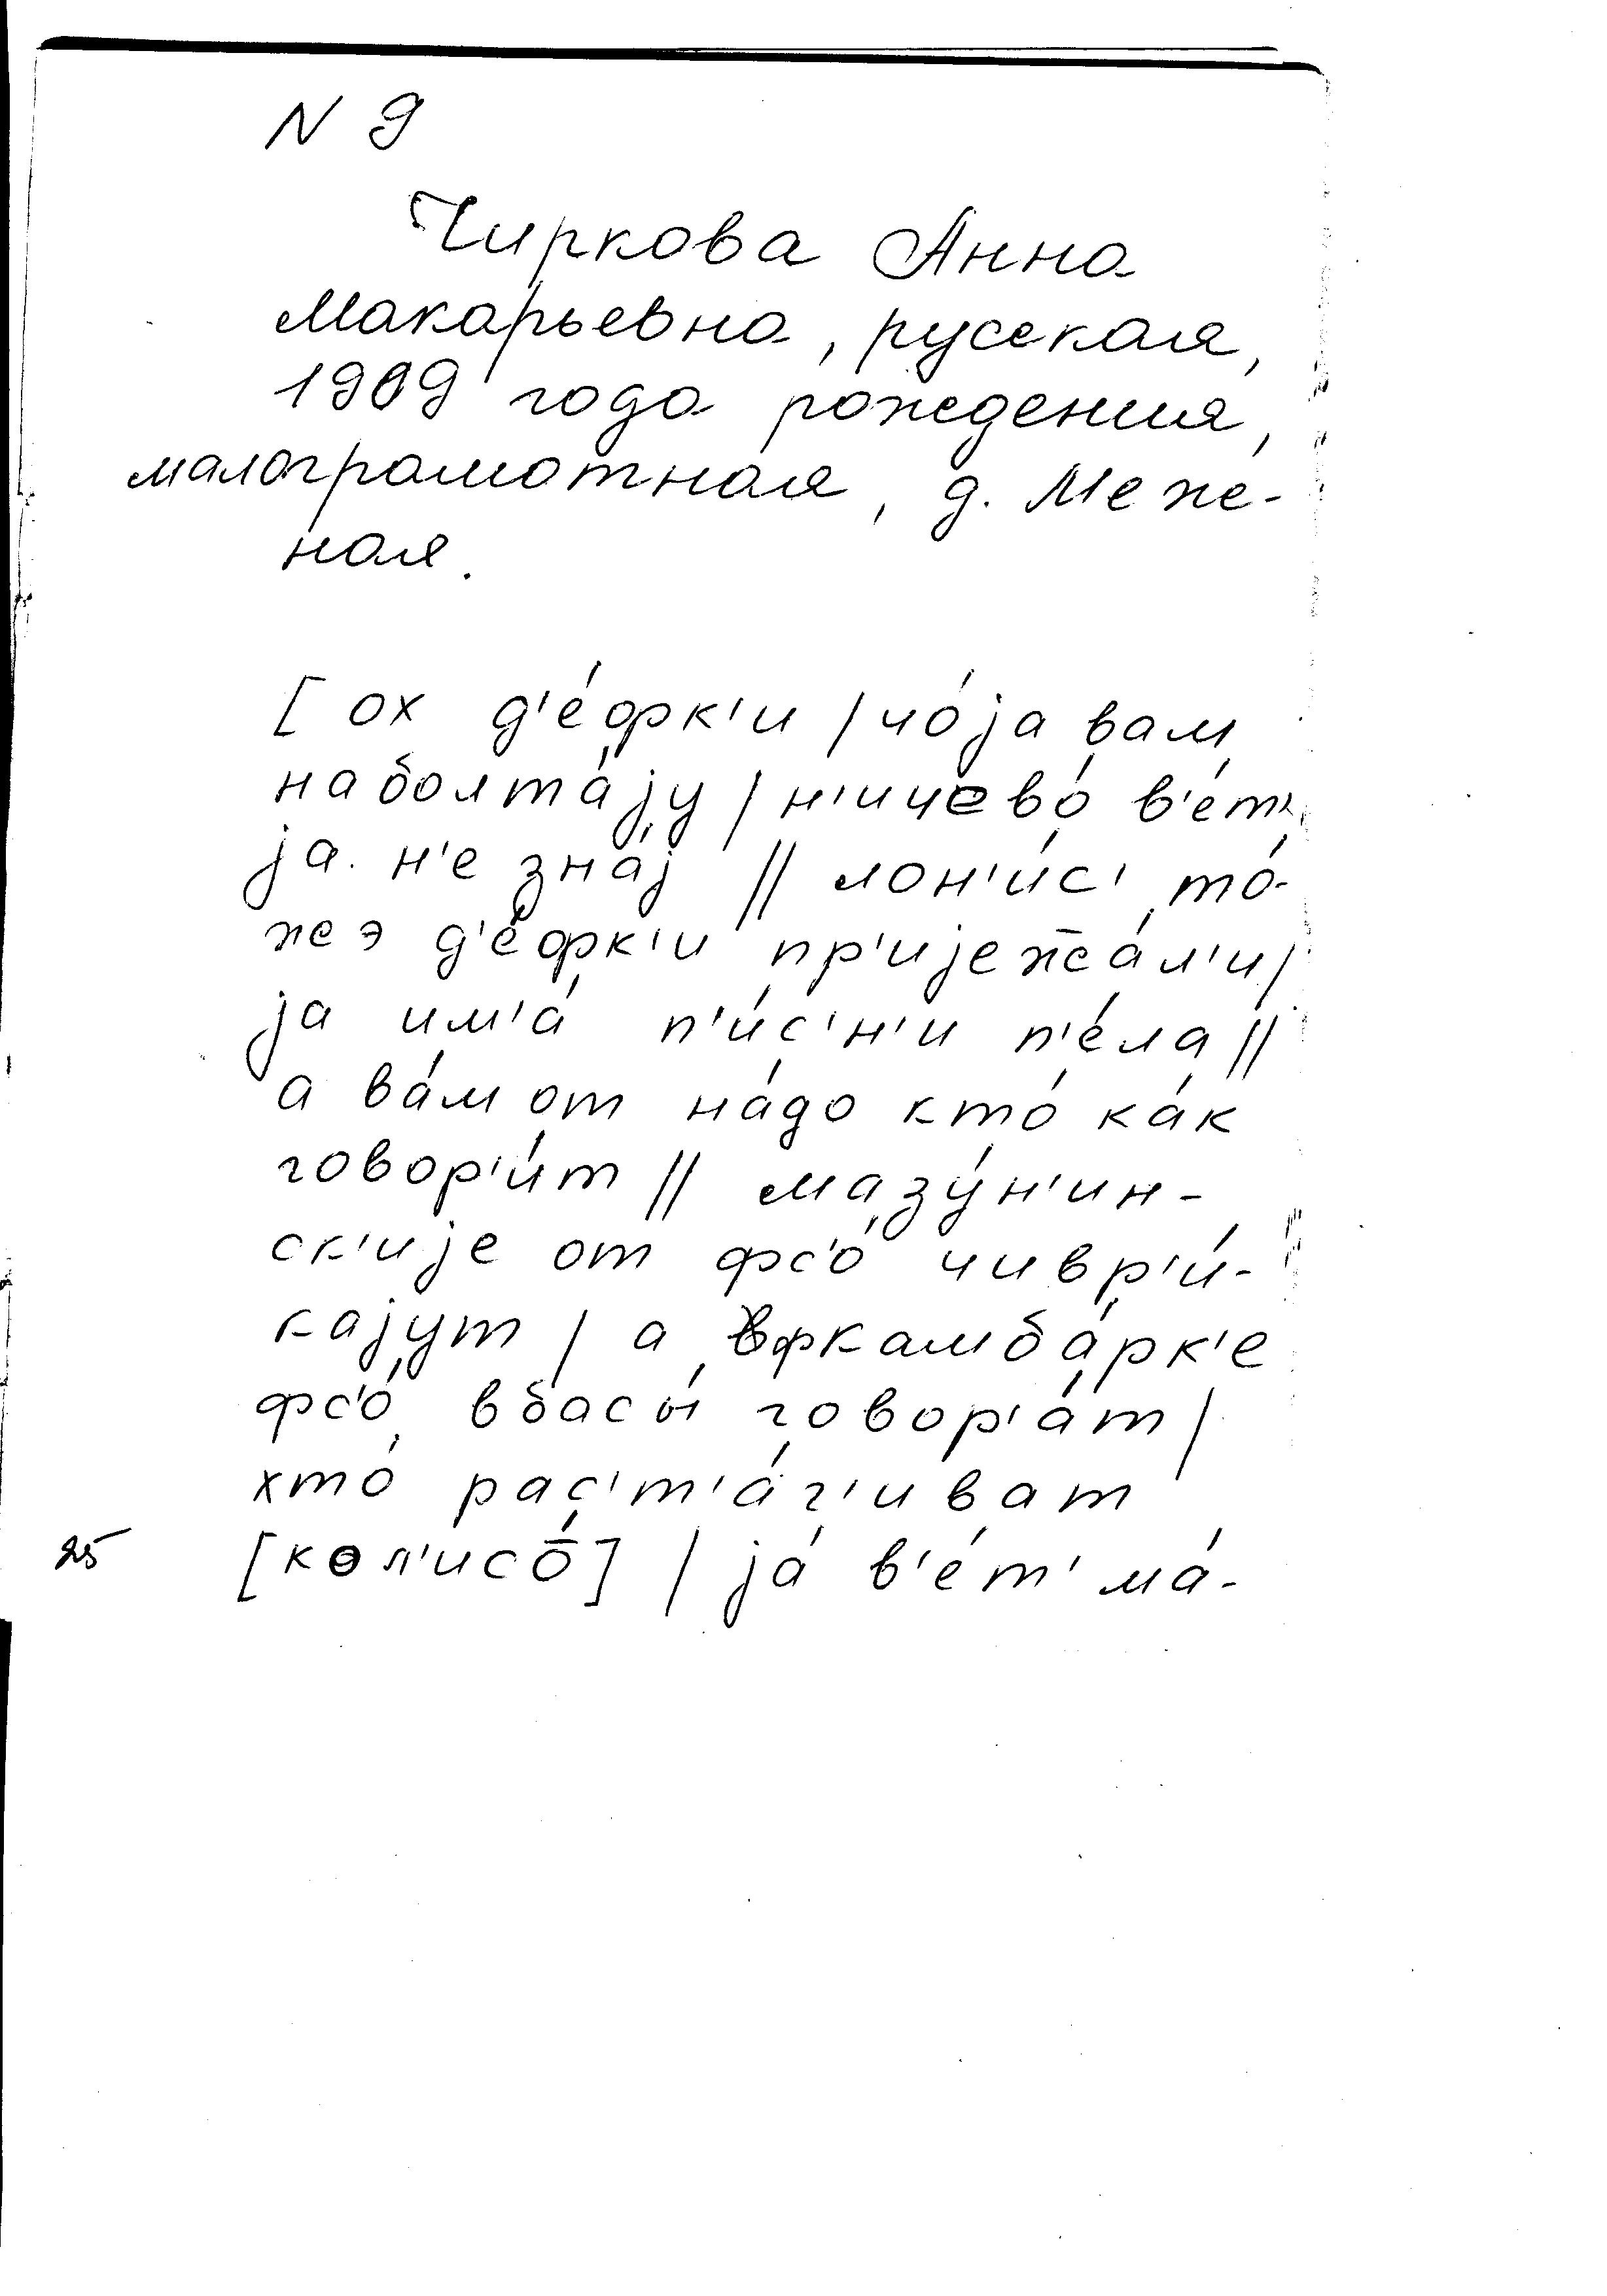 N 9
Чиркова Анна
Макарьевна, русская,
1909 года рождения,
малограмотная, д. Меже-
ная.
[ ох д'е́фк'и / чо́ jа вам
наболта́jу / н'ичево́ в'е́т'
jа н'е зна́j // лон'и́с' то́-
жэ д'е́фк'и пр'иjеж̅а́л'и /
jа им'а́ п'и́с'н'и п'е́ла //
а ва́м от на́до кто́ ка́к
говор'и́т // мазу́н'ин-
ск'иjе от фс'о́ чиври́-
каjут / а фкамба́рк'е
фс'о́ вбасы́ говор'а́т /
хто́ рас'т'а́г'иват
25 [кол'исо̅́] / jа́ в'е́т' ма́-